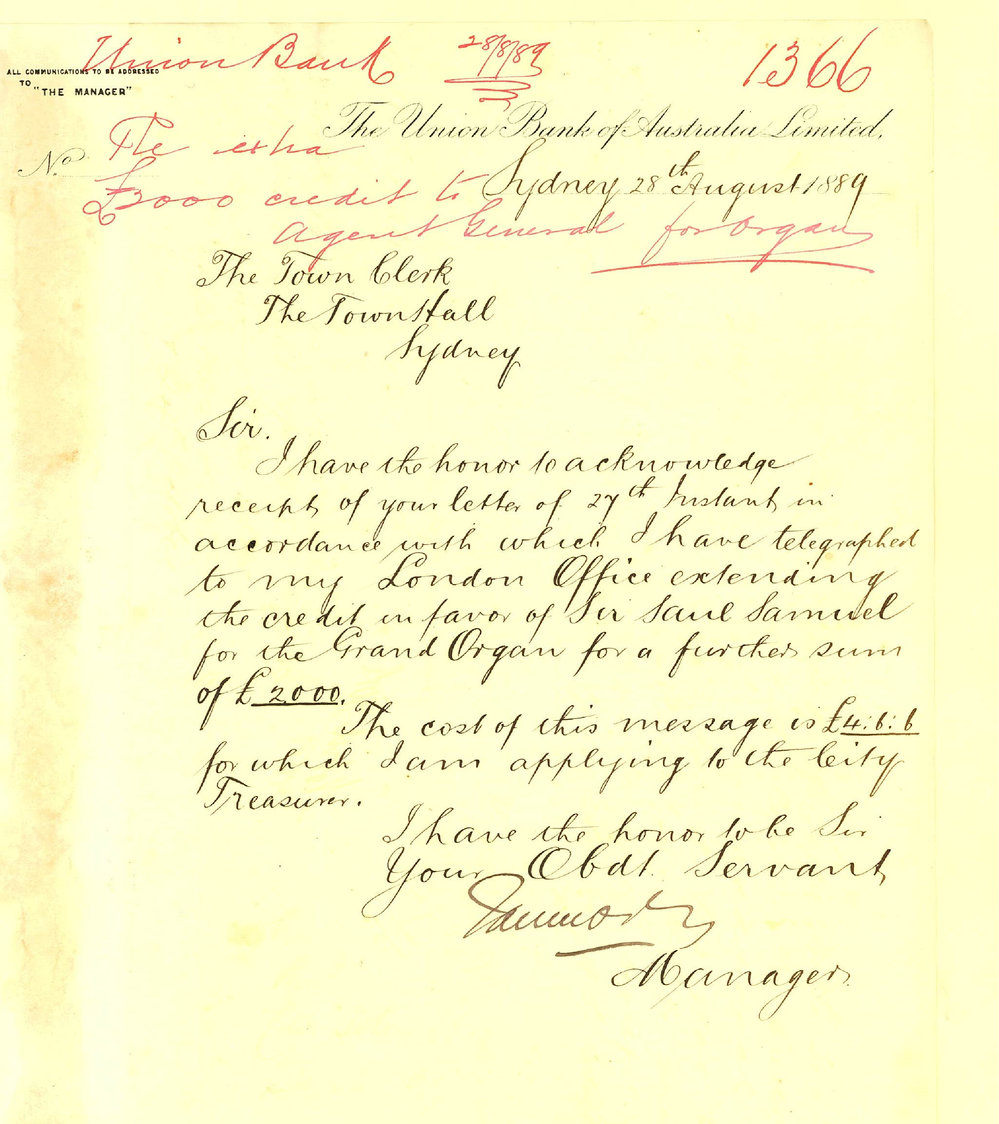 Union Bank 28/8/89 1366
ALL COMMUNICATIONS TO BE ADDRESSED
TO
"THE MANAGER"
The Union Bank of Australia Limited.
No.
The extra
£2000 credit to
Agent General for Organ
Sydney 28th August 1889
The Town Clerk
The Town Hall
Sydney
Sir.
I have the honor to acknowledge
receipt of your letter of 27th Instant in
accordance with which I have telegraphed
to my London Office extending
the credit in favor of Sir Saul Samuel
for the Grand Organ for a further sum
of £2000.
The cost of this message is £4:6:6
for which I am applying to the City
Treasurer.
I have the honor to be Sir
Your Obdt. Servant
Manager